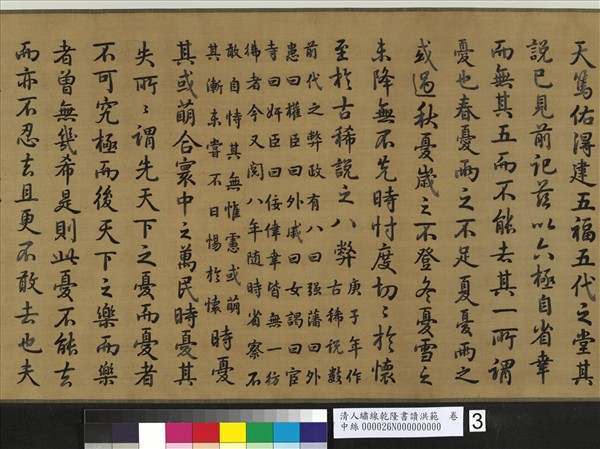 天篤佑得建五福五代之堂其
說已見前記茲以六極自省幸
而無其五而不能去其一所謂
憂也春憂雨之不足夏憂雨之
或過秋憂歲之不登冬憂雪之
未降無不先時忖度切〻於懷
至於古稀說之八弊庚子年作
古稀說數
前代之弊政有八曰强藩曰外
患曰權臣曰外戚曰女謁曰宦
寺曰奸臣曰佞倖幸皆無一彷
彿者今又閱八年随時省察不
敢自恃其無惟慮或萌
其漸未嘗不日惕於懷時憂
其或萌合寰中之萬民時憂其
失所〻謂先天下之憂而憂者
不可究極而後天下之樂而樂
者曾無幾希是則此憂不能去
而亦不忍去且更不敢去也夫
清人繡線乾隆書讀洪範 卷
中絲 000026N000000000
3